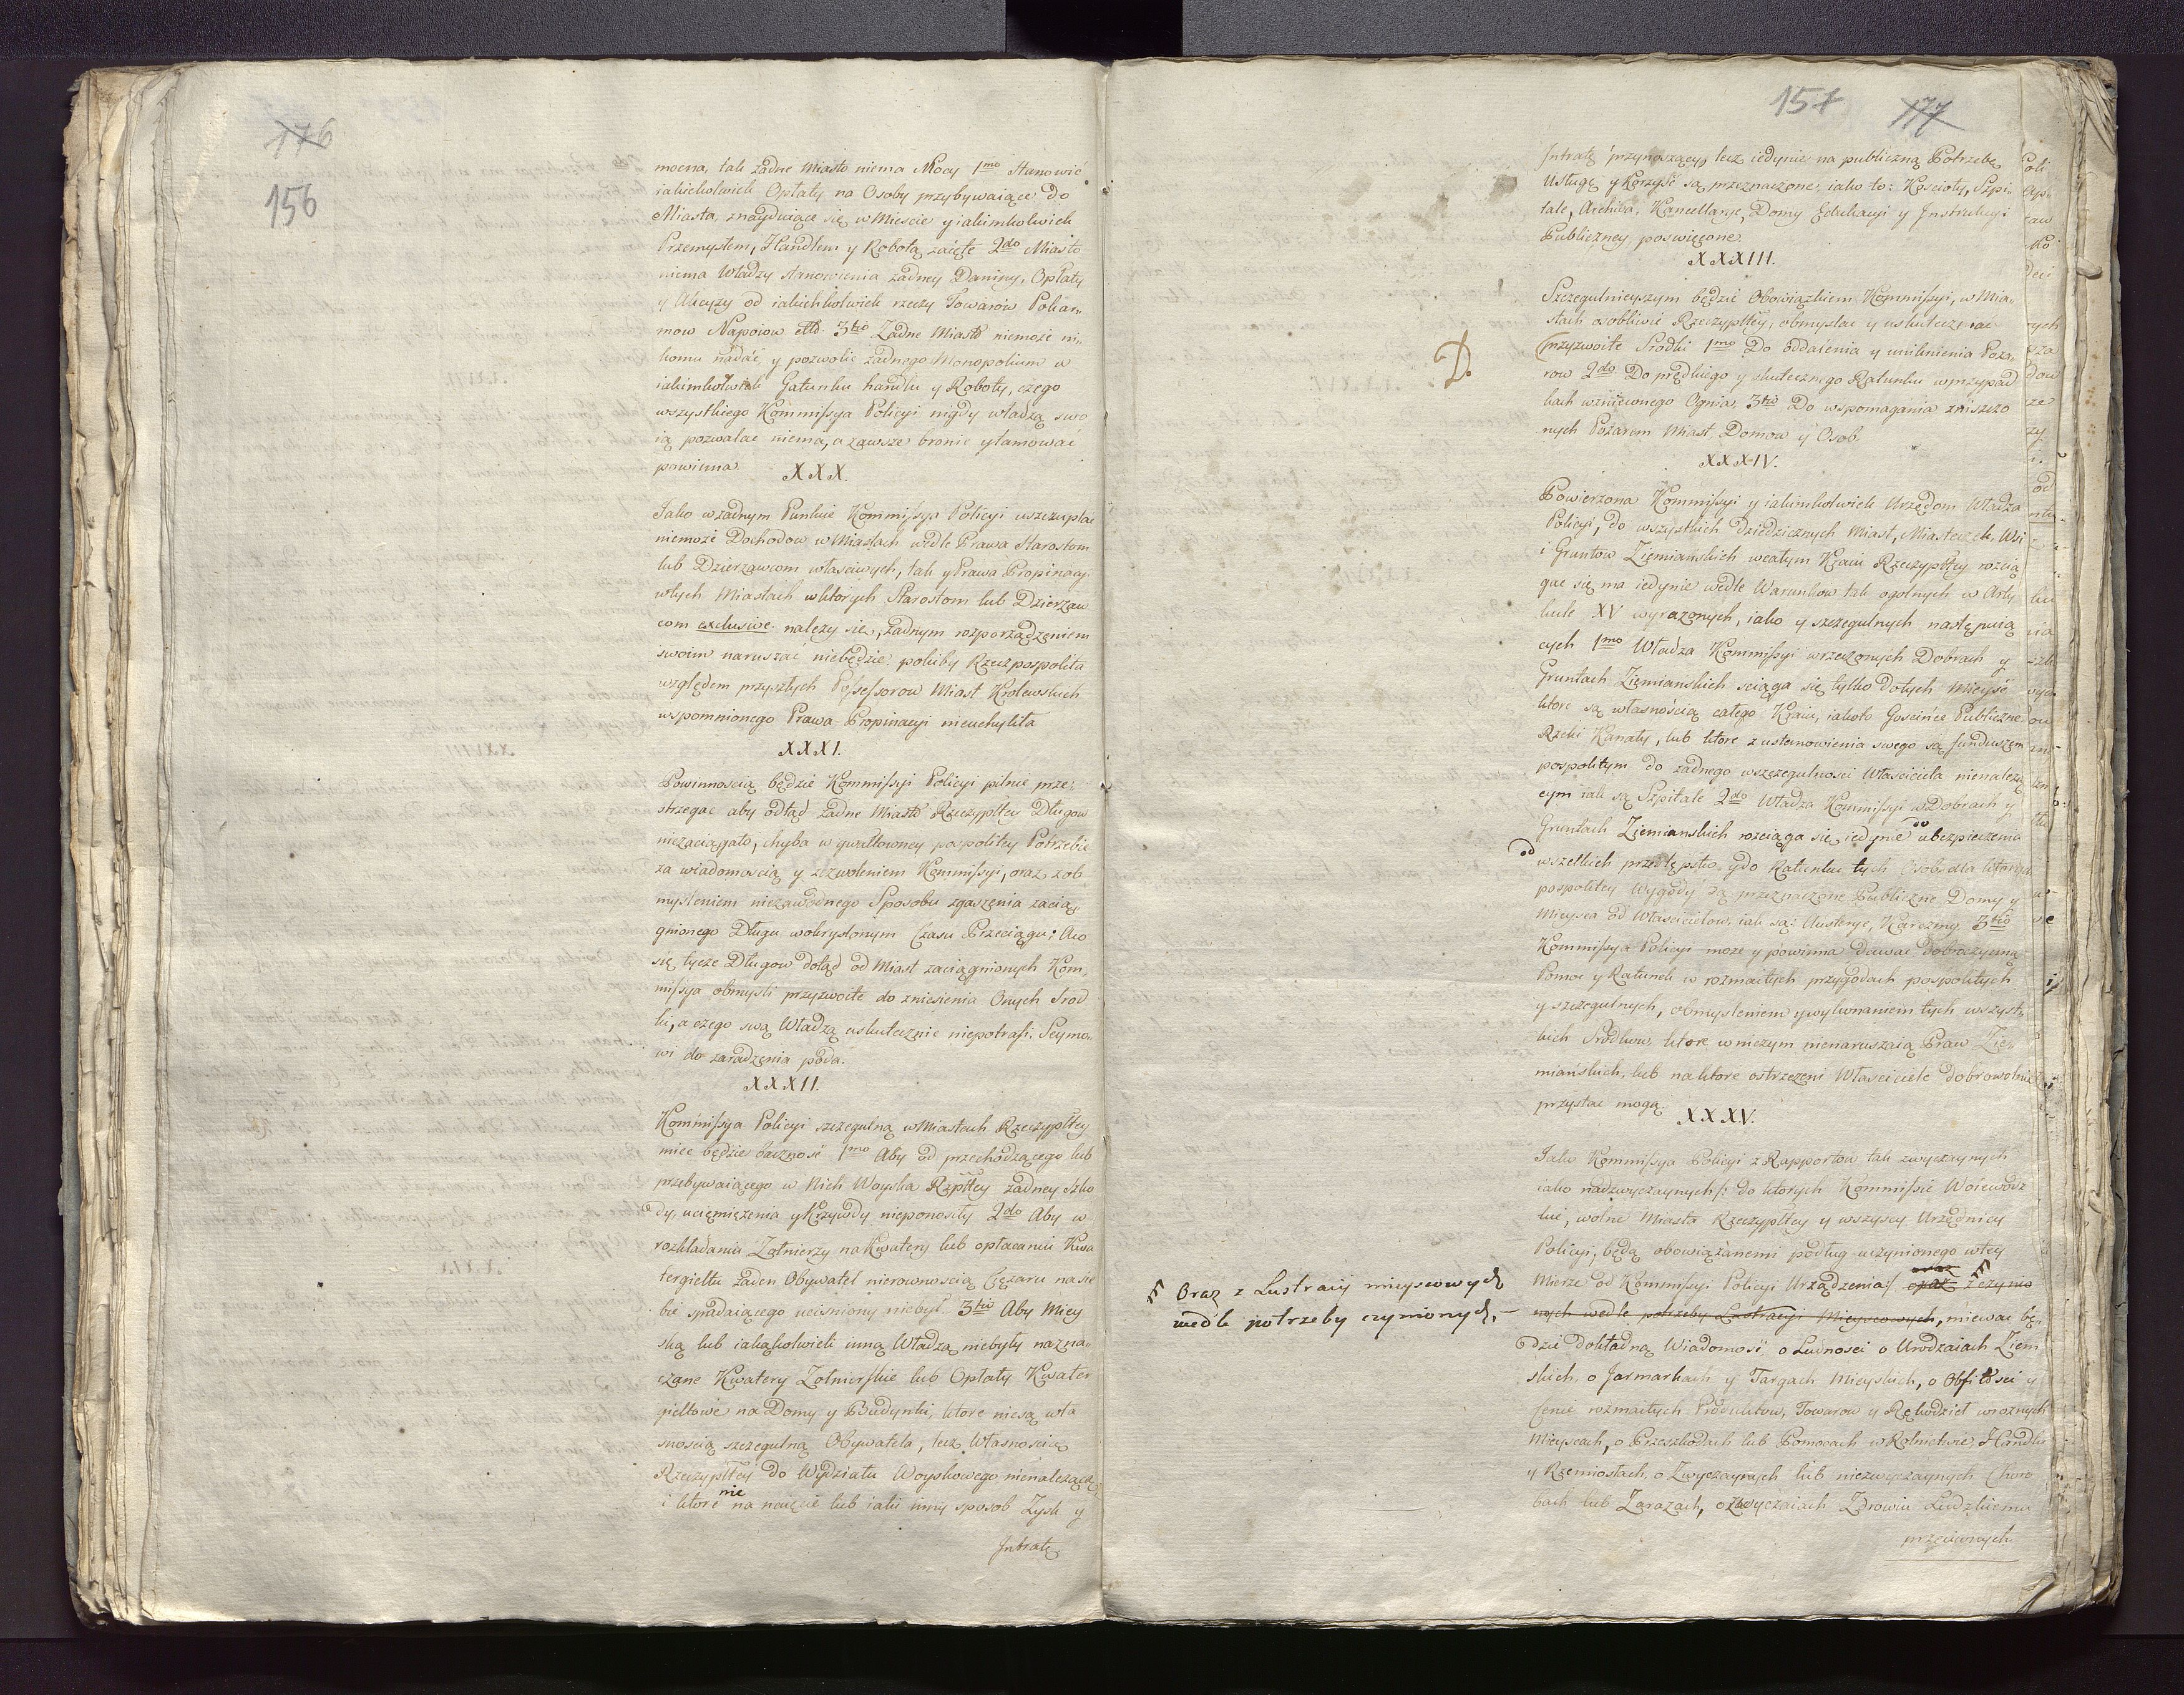 176
156
mocna, tak żadne Miasto niema Mocy 1mo Stanowić
iakichkolwiek Opłaty na Osoby przybywaiące do
Miasta, znayduiące się w Miescie y iakimkolwiek
Przemysłem, Handlem y Robotą zaięte 2do Miasto
niema Władzy stanowienia żadney Daniny, Opłaty
y Akcyzy od iakichkolwiek rzeczy Towarów Pokar„
mow Napoiow ettd. 3tio Żadne Miasto niemoże ni„
komu nadać y pozwolic żadnego Monopolium w
iakimkolwiek Gatunku handlu y Roboty, czego
wszystkiego Kommissya Policyi nigdy władzą swo
ią pozwalac niema, a zawsze bronic y tamować
powinna.
XXX.
Jako w żadnym Punkcie Kommissya Policyi uszczuplac
niemoże Dochodow w Miastach wedle Prawa Starostom
lub Dzierżawcom właściwych, tak y Prawa Propinacyi
w tych Miastach w ktorych Starostom lub Dzierżaw
com exclusive należy się, żadnym rozporządzeniem
swoim naruszać niebędzie, pokiby Rzeczpospolita
względem przyszłych Possessorow Miast Krolewskich
wspomnionego Prawa Propinacyi nieuchyliła
XXXI.
Powinnością będzie Kommissyi Policyi pilnie prze„
strzegac aby odtąd żadne Miasto Rzeczypltey Długow
niezaciągało, chyba w gwałtowney pospolitey Potrzebie
za wiadomością y zezwoleniem Kommissyi, oraz z ob
mysleniem niezawodnego Sposobu zgaszenia zacią„
gnionego Długu w okryslonym Czasu Przeciągu; A co
się tycze Długow dotąd od Miast zaciągnionych Kom„
missya obmysli przyzwoite do zniesienia Onych Srod
ki, a czego swą Władzą uskutecznic niepotrafi. Seymo„
wi do zaradzenia poda.
XXXII.
Kommissya Policyi szczegulną w Miastach Rzeczypltey
miec będzie bacznosć 1mo Aby od przechodzącego lub
przebywaiącego w Nich Woyska Rzpltey żadney Szko
dy, uciemiężenia y Krzywdy nieponosiły 2do Aby w
rozkładaniu Żołnierzy na Kwatery lub opłacaniu Kwa
tergieltu żaden Obywatel nierownoscią Ciężaru na sie
bie spadaiącego ucisniony niebył. 3tio Aby Miey
ską lub iakążkolwiek inną Władzą niebyły nazna„
czane Kwatery Żołnierskie lub Opłaty Kwater
gieltowe na Domy y Budynki, ktore niesą wła
snoscią szczegulną Obywatela, lecz Własnoscią
Rzeczypltey do Wydziału Woyskowego nienależące,
i ktore nie na naięcie lub iaki inny sposob Zysk y
Intratę
157
177
Intratę przynoszący, lecz iedynie na publiczną Potrzebę
Usługę y Korzysć są przeznaczone, iako to: Koscioły, Szpi„
tale, Archiva, Kancellarye, Domy Edukacyi y Instrukcyi
Publiczney poswięcone.
XXXIII.
Szczegulnieyszym będzie Obowiązkiem Kommissyi, w Mia„
stach osobliwie Rzeczypltey, obmyslac y uskuteczniac
D.
przyzwoite Srodki 1mo Do oddalenia y uniknienia Poża„
row 2do Do prędkiego y skutecznego Ratunku w przypad
kach wznieconego Ognia, 3tio Do wspomagania zniszczo
nych Pożarem Miast, Domow y Osob.
XXXIV.
Powierzona Kommissyi y iakimkolwiek Urzędom Władza
Policyi, do wszystkich Dziedzicznych Miast, Miasteczek, Wsi
i Gruntow Ziemianskich w całym Kraiu Rzeczypltey rozcią
gac się ma iedynie wedle Warunkow tak ogolnych w Arty
kule XV wyrażonych, iako y szczegulnych następuią
cych 1mo Władza Kommissyi w rzeczonych Dobrach y
Gruntach Ziemianskich sciąga się tylko do tych Mieysc
ktore są własnoscią całego Kraiu, iako to Goscińce Publiczne
Rzeki Kanały, lub ktore z ustanowienia swego są funduszem
pospolitym do żadnego w szczegulnosci Właściciela nienależą
cym iak są Szpitale 2do Władza Kommissyi w Dobrach y
Gruntach Ziemianskich rozciąga się, iedynie do ubezpieczenia
od wszelkich przestępstw, y do Ratunku tych Osob, dla ktorych
pospolitey Wygody są przeznaczone Publiczne Domy y
Mieysca od Właścicielow, iak są: Austerye, Karczmy. 3tio
Kommissya Policyi może y powinna dawac dobroczynną
Pomoc y Ratunek w rozmaitych przygodach pospolitych
y szczegulnych, obmysleniem y wykonaniem tych wszyst„
kich Srodkow, ktore w niczym nienaruszaią Praw Zie„
miańskich, lub na ktore ostrzeżeni Właściciele dobrowolnie
przystac mogą.
XXXV.
Jako Kommissya Policyi z Rapportow tak zwyczaynych
iako nadzwyczaynych /: do ktorych Kommissie Woiewodz
kie, wolne Miasta Rzeczypltey y wszyscy Urzędnicy
Policyi, będą obowiązanemi podług uczynionego w tey
Mierze od Kommissyi Policyi Urządzenia :/ oraz z czynio
nych wedle potrzeby Lustracyi Mieyscowych, miewac bę„
Oraz z Lustracij mieyscowych
wedle potrzeby czynionych.
dzie dokładną Wiadomosć o Ludnosci o Urodzaiach Ziem
skich, o Jarmarkach y Targach Mieyskich, o Obfitosci y
Cenie rozmaitych Produktow, Towarow y Rękodzieł w rożnych
Mieyscach, o Przeszkodach lub Pomocach w Rolnictwie, Handlu
y Rzemiosłach, o Zwyczaynych lub niezwyczaynych Choro
bach lub Zarazach, o Zwyczaiach Zdrowiu Ludzkiemu
przeciwnych